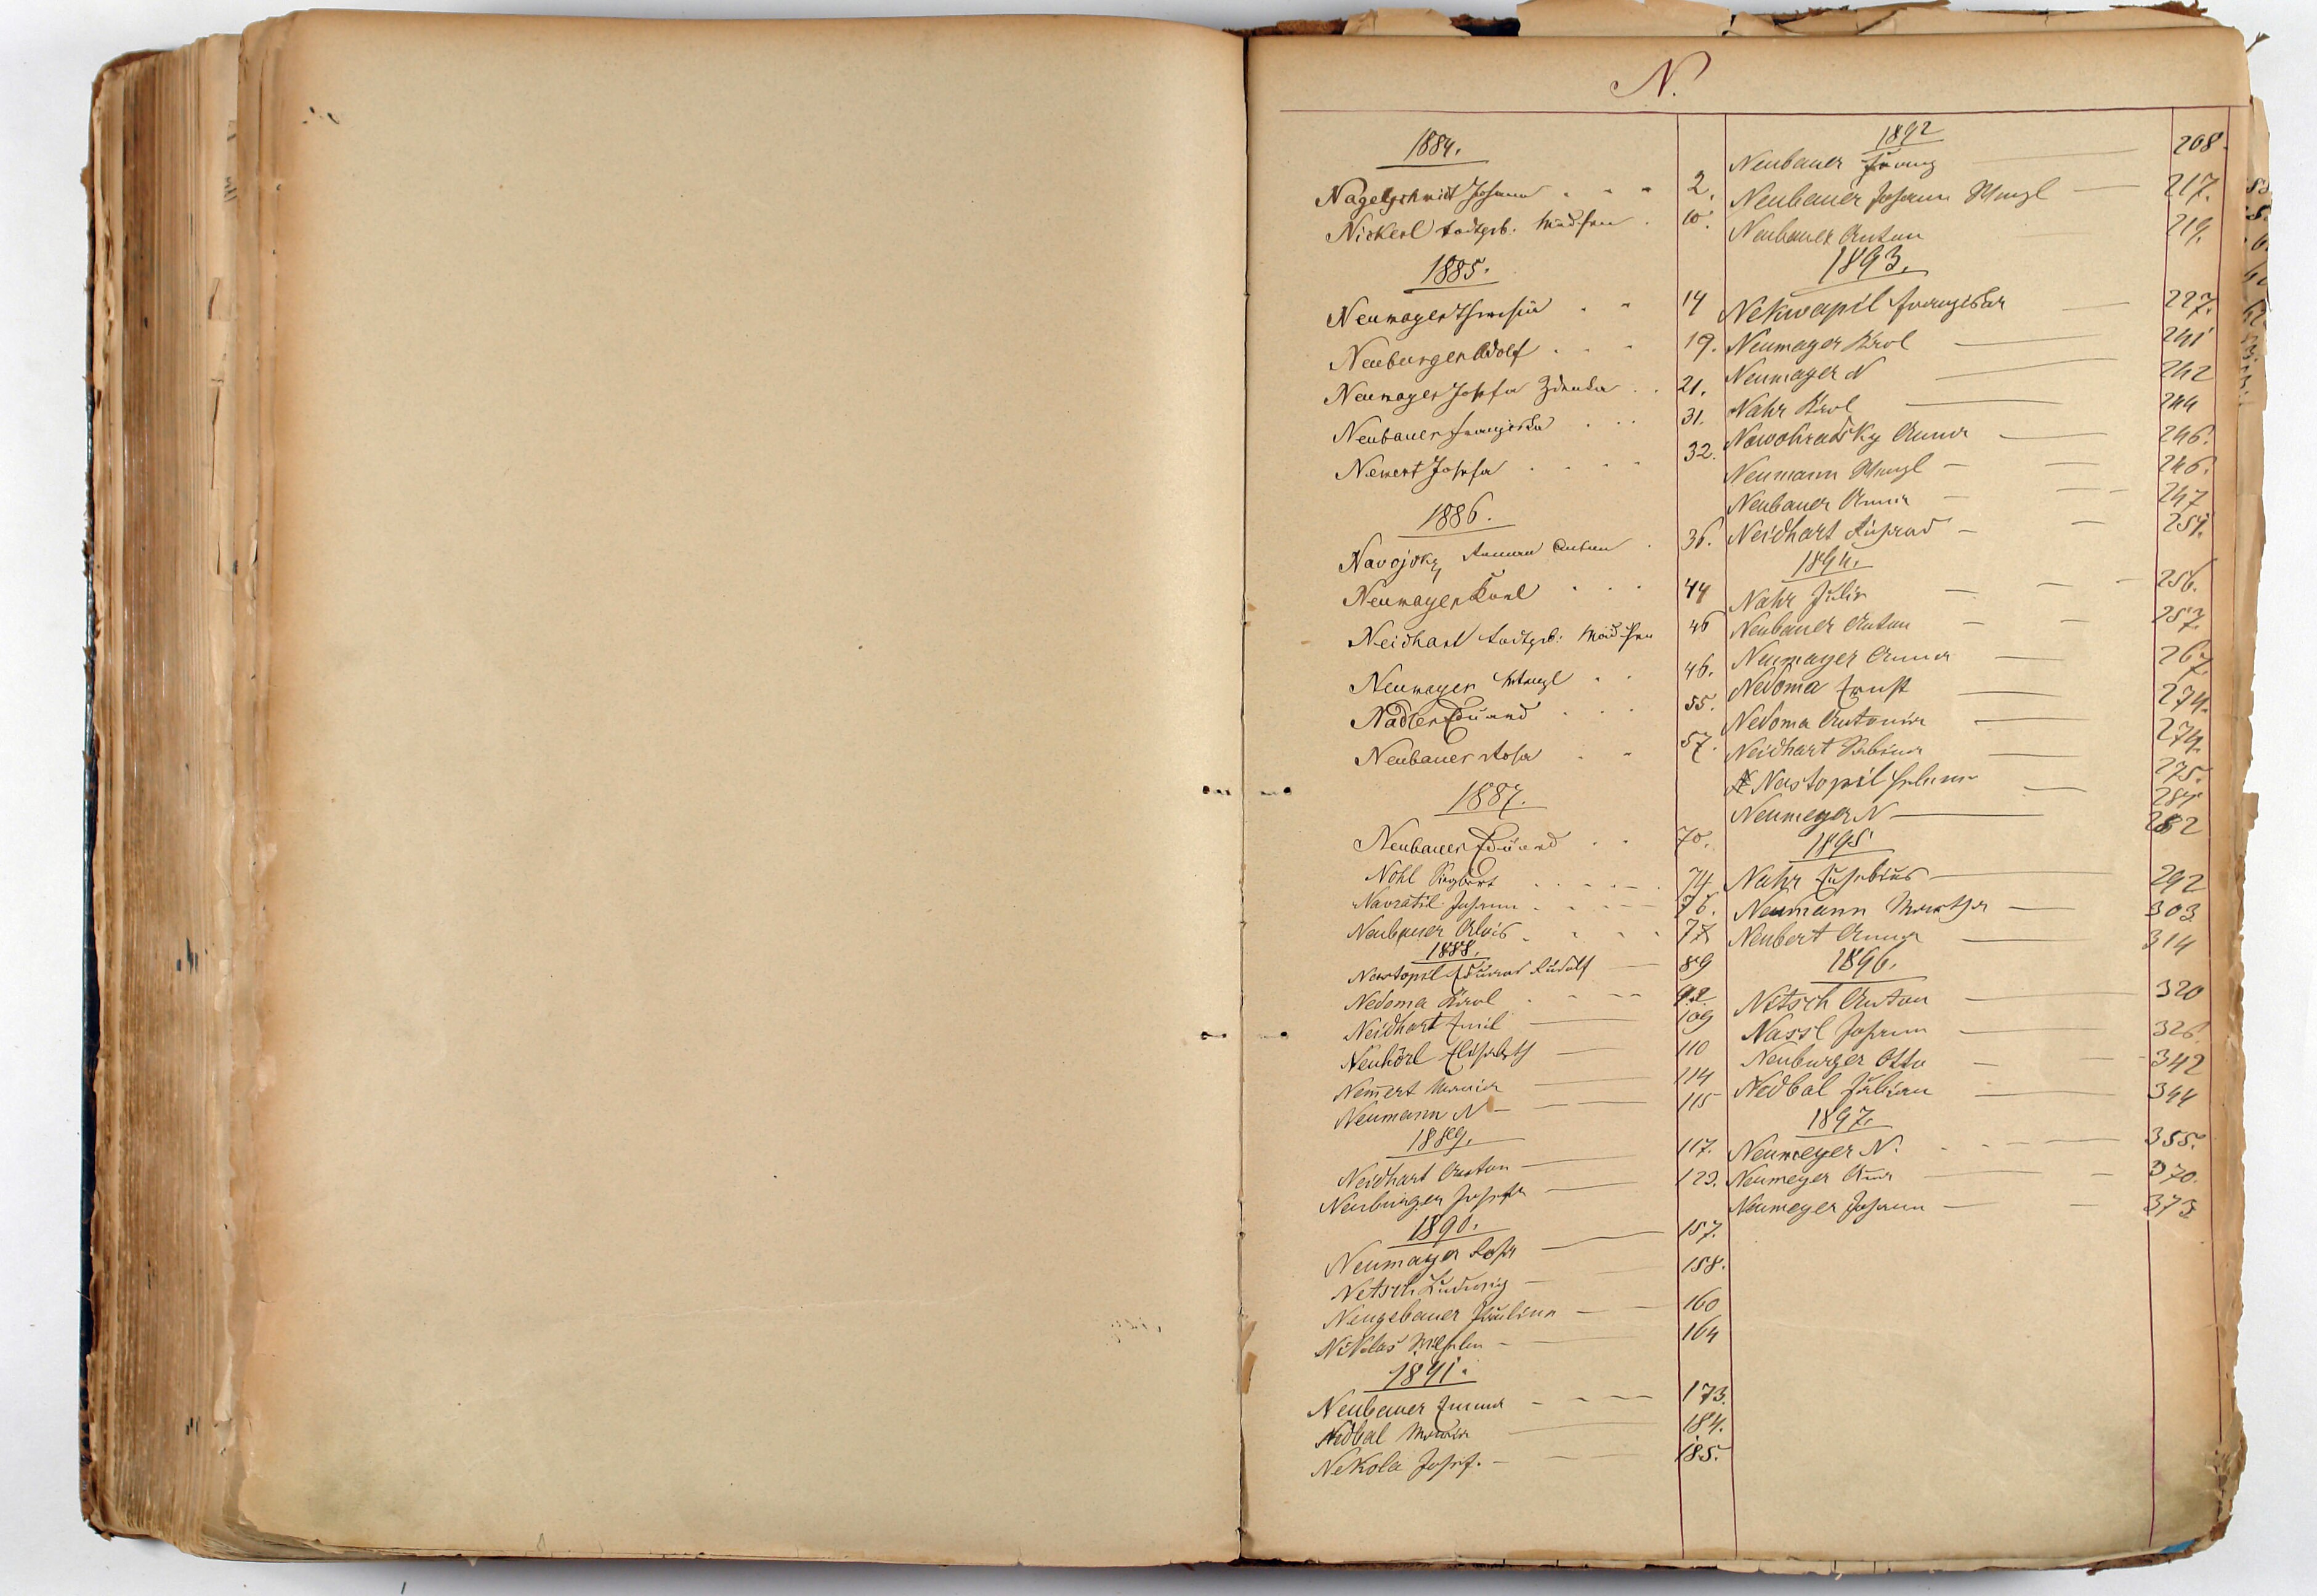 N.
1884.
Nagelschmidt Johann 2.
Nickerl todtgeb. Mädchen 10.
1885.
Neumayer Theresia 14
Neuburger Adolf 19.
Neumayer Josefa Zdenka 21.
Neubauer Franziska 31.
Nemert Josefa 32.
1886.
Navojsky Anton 36.
Neumayer Karl 44
Neidhart todtgeb. Mädchen 46
Neumayer Wenzl 46.
Nadler Eduard 55.
Neubauer Rosa 57.
1887.
Neubauer Eduard 70.
Nohl Siegbert 74
Navratil Johann 76.
Neubauer Alois 77
1888.
Nastopil Eduard Rudolf 89
Nedoma Karl 92.
Neidhart Emil 109
Neuhörl Elisabeth 110
Nemert Maria 114
Neumann N 115
1889.
Neidhart Anton 117.
Neuburger Josefa 123.
1890.
Neumayer Rosa 157.
Netsch Ludwig 158.
Neugebauer Paulina 160
Niklas 164
1891.
Neubauer Emma 173.
Nedbal Maria 184.
Nekola Josef. 185.
1892
Neubauer Franz 208.
Neubauer Johann Wenzl 217.
Neubauer Anton 219.
1893.
Nekwapil Franziska 227.
Neumayer Karl 241
Neumayer N 242
Nahr Karl 244
Nowohradsky Anna 246.
Neumann Wenzl 246.
Neubauer Anna 247
Neidhart Richard 251.
1894.
Nahr Julia 256.
Neubauer Anton 257.
Neumayer Anna 267.
Nedoma Ernst 274.
Nedoma Antonia 274.
Neidhart Sabina 275.
Nastopil Helene 281
Neumeyer N 282
1895
Nahr Eusebius 292
Neumann Martha 303
Neubert Anna 314
1896.
Netsch Anton 320
Nassl Johann 326.
Neuburger Otto 342
Nedbal Julian 344
1897.
Neumeyer N. 355.
Neumeyer Anna 370.
Neumeyer Johann 373